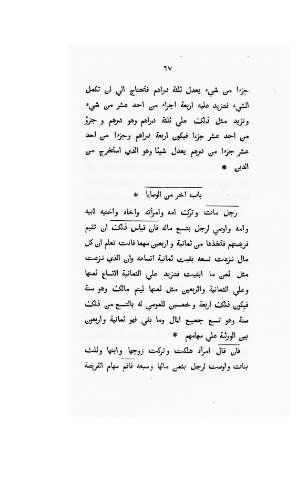 ٦٧
جزءا من شيء يعدل ثلثة دراهم فتحتاج الي ان تكمل
الشيء فتزيد عليه اربعة اجزاء من احد عشر من شيء
وتزيد مثل ذلك علي ثلثة دراهم وهو درهم و جزؤ
من احد عشر جزءا فيكون اربعة دراهم وجزءا من احد
عشر جزءا من درهم يعدل شيئا وهو الذي استخرج من
الدين *
باب اخر من الوصايا *
رجل مات وترك امه وامرأته واخاه واختيه لابيه
وامه واوصي لرجل بتسع ماله فان قياس ذلك ان تقيم
فريضتهم فتأخذها من ثمانية و اربعين سهما فانت تعلم ان كل
مال نزعت تسعه بقيت ثمانية اتساعه وان الذي نزعت
مثل ثمن ما ابقيت فتزيد علي الثمانية الاتساع ثمنها
وعلي الثمانية والاربعين مثل ثمنها ليتم مالك وهو ستة
فيكون ذلك اربعة وخمسين للموصي له بالتسع من ذلك
ستة وهو تسع جميع المال وما بقي فهو ثمانية و اربعون
بين الورثة علي سهامهم *
فان قال امرأة هلكت وتركت زوجها وابنها وثلث
بنات واوصت لرجل بثمن مالها وسبعه فاقم سهام الفريضة